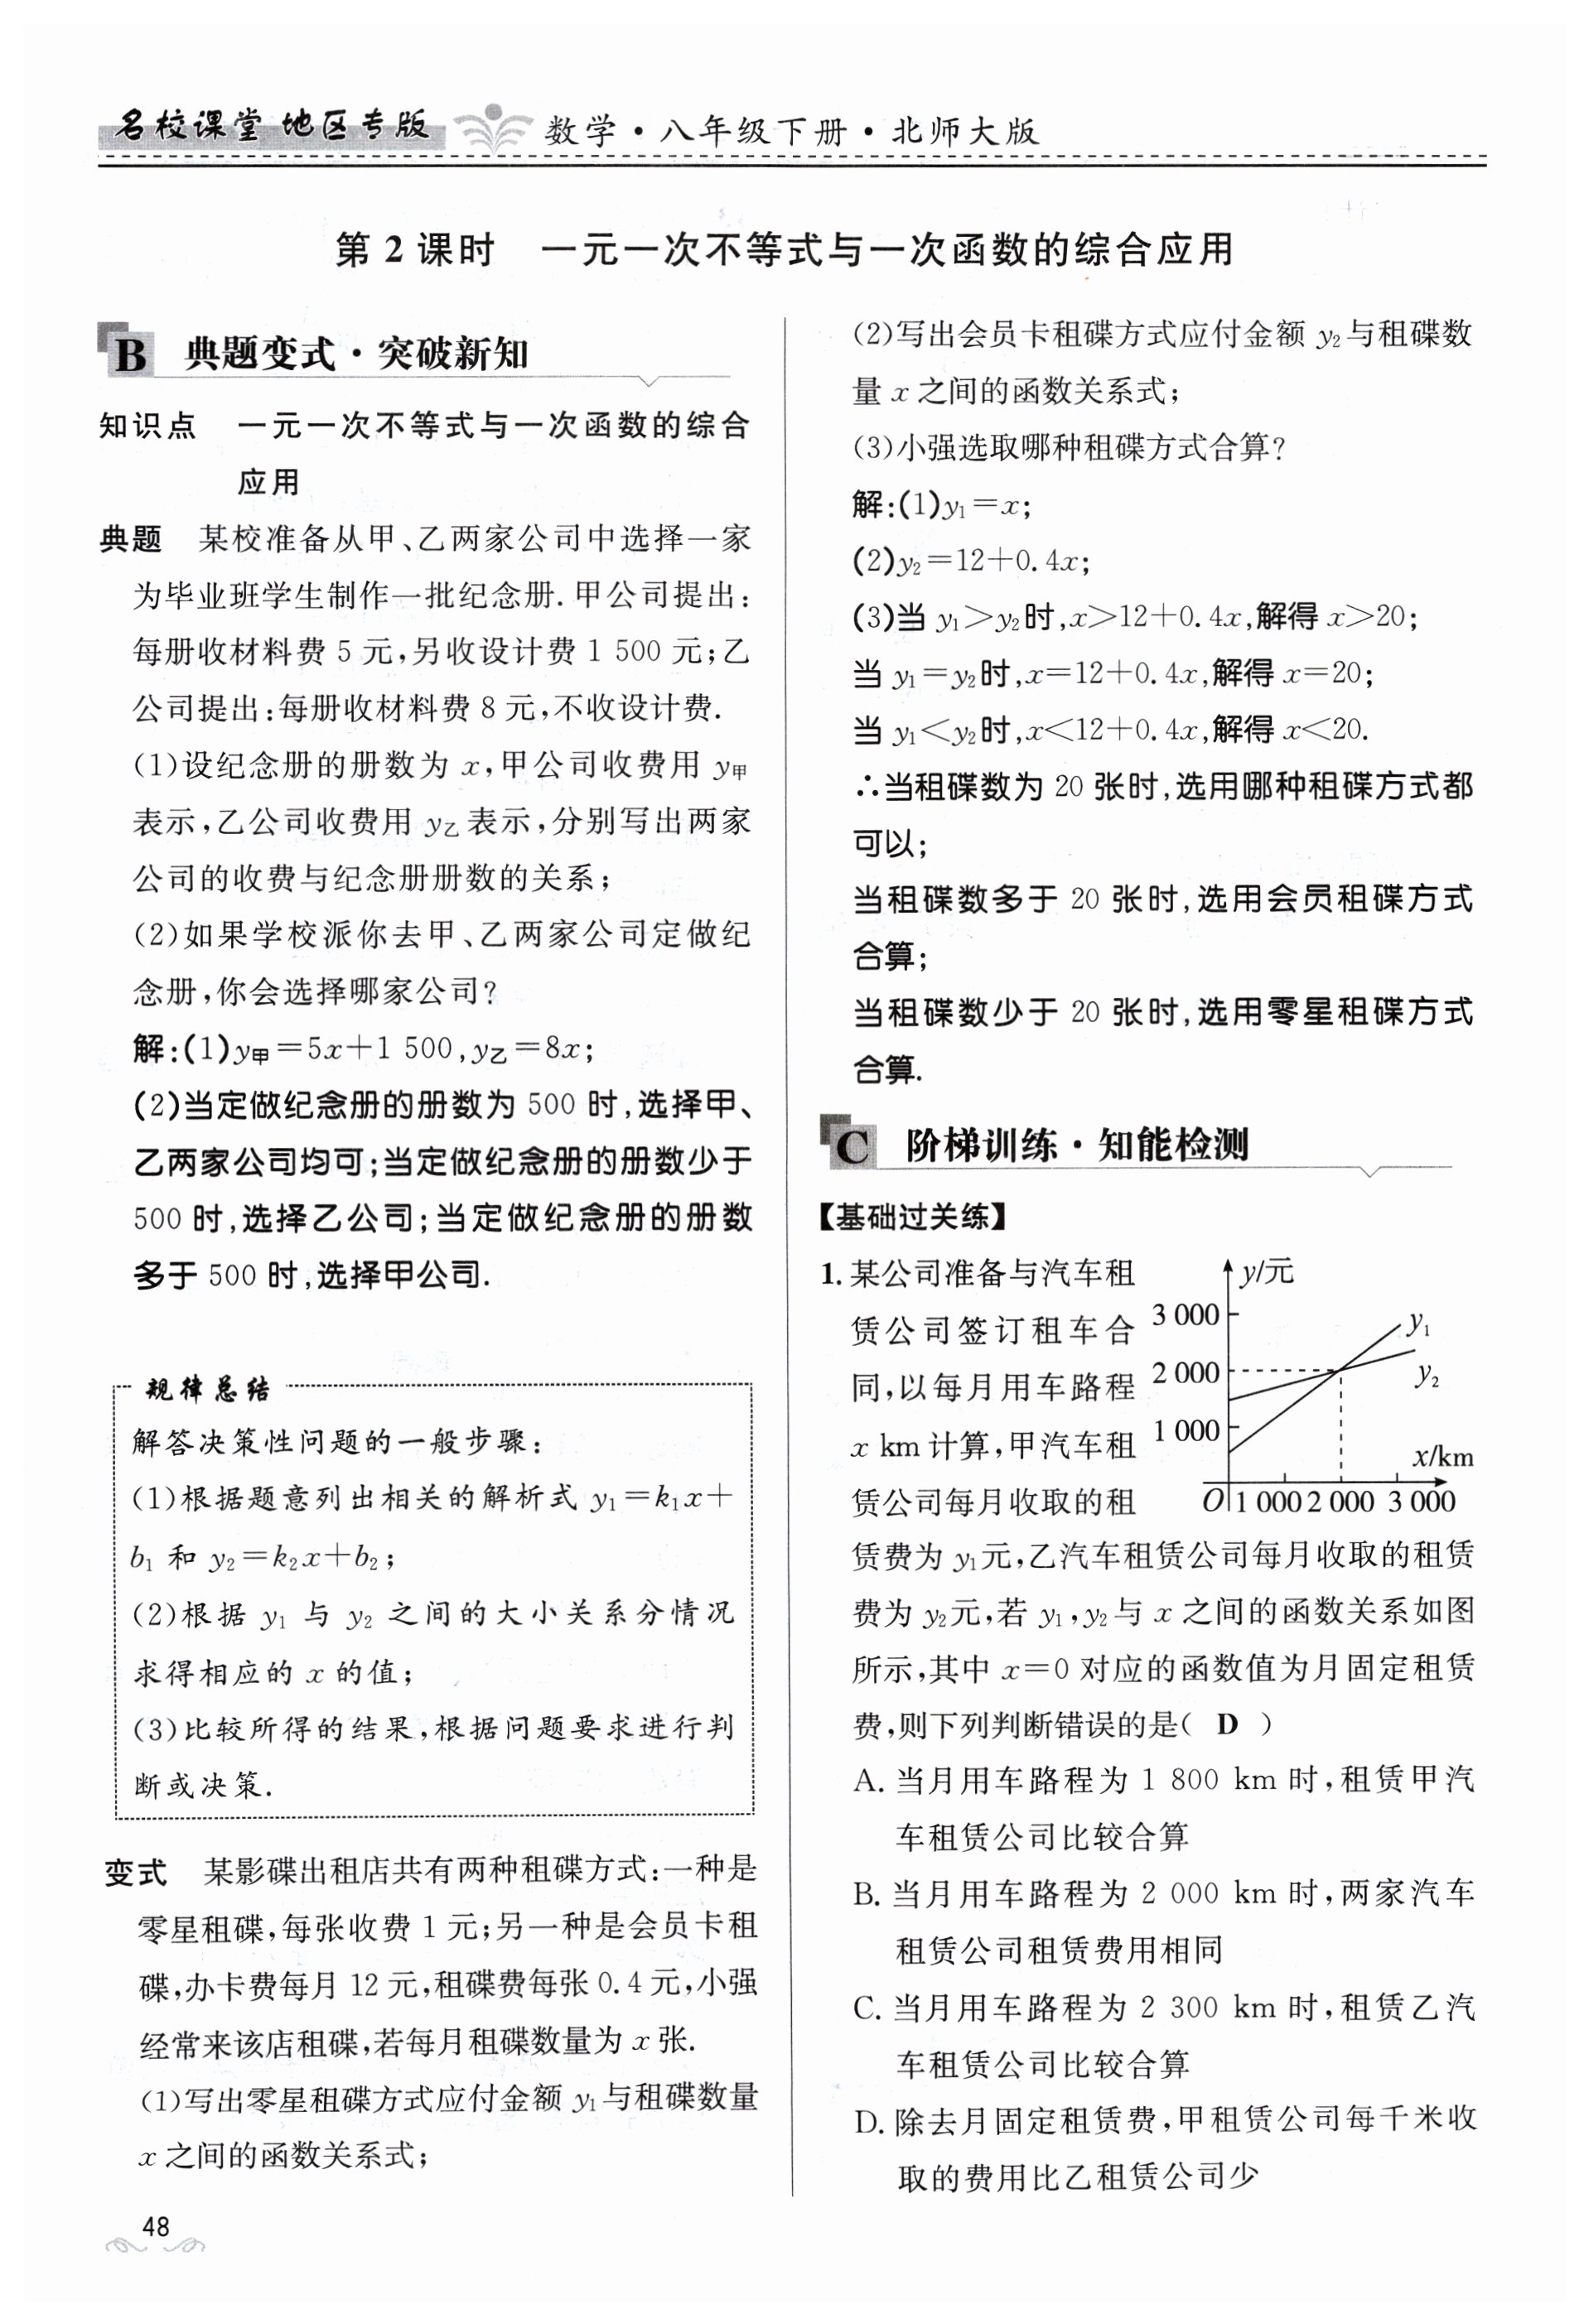 名校课堂 地区专版 数学·八年级下册·北师大版
第2课时 一元一次不等式与一次函数的综合应用
B 典题变式·突破新知
知识点 一元一次不等式与一次函数的综合
应用
典题 某校准备从甲、乙两家公司中选择一家
为毕业班学生制作一批纪念册.甲公司提出:
每册收材料费5元,另收设计费1 500元;乙
公司提出:每册收材料费8元,不收设计费.
(1)设纪念册的册数为x,甲公司收费用y甲
表示,乙公司收费用y乙表示,分别写出两家
公司的收费与纪念册册数的关系;
(2)如果学校派你去甲、乙两家公司定做纪
念册,你会选择哪家公司?
解:(1)y甲=5x+1 500,y乙=8x;
(2)当定做纪念册的册数为500时,选择甲、
乙两家公司均可;当定做纪念册的册数少于
500时,选择乙公司;当定做纪念册的册数
多于500时,选择甲公司.
规律总结
解答决策性问题的一般步骤:
(1)根据题意列出相关的解析式y₁=k₁x+
b₁和y₂=k₂x+b₂;
(2)根据y₁与y₂之间的大小关系分情况
求得相应的x的值;
(3)比较所得的结果,根据问题要求进行判
断或决策.
变式 某影碟出租店共有两种租碟方式:一种是
零星租碟,每张收费1元;另一种是会员卡租
碟,办卡费每月12元,租碟费每张0.4元,小强
经常来该店租碟,若每月租碟数量为x张.
(1)写出零星租碟方式应付金额y₁与租碟数量
x之间的函数关系式;
(2)写出会员卡租碟方式应付金额y₂与租碟数
量x之间的函数关系式;
(3)小强选取哪种租碟方式合算?
解:(1)y₁=x;
(2)y₂=12+0.4x;
(3)当y₁>y₂时,x>12+0.4x,解得x>20;
当y₁=y₂时,x=12+0.4x,解得x=20;
当y₁<y₂时,x<12+0.4x,解得x<20.
∴当租碟数为20张时,选用哪种租碟方式都
可以;
当租碟数多于20张时,选用会员租碟方式
合算;
当租碟数少于20张时,选用零星租碟方式
合算.
C 阶梯训练·知能检测
【基础过关练】
1.某公司准备与汽车租
赁公司签订租车合
同,以每月用车路程
x km计算,甲汽车租
赁公司每月收取的租
y/元
3 000
y₁
2 000
y₂
1 000
x/km
O 1 000 2 000 3 000
赁费为y₁元,乙汽车租赁公司每月收取的租赁
费为y₂元,若y₁,y₂与x之间的函数关系如图
所示,其中x=0对应的函数值为月固定租赁
费,则下列判断错误的是( D )
A.当月用车路程为1 800 km时,租赁甲汽
车租赁公司比较合算
B.当月用车路程为2 000 km时,两家汽车
租赁公司租赁费用相同
C.当月用车路程为2 300 km时,租赁乙汽
车租赁公司比较合算
D.除去月固定租赁费,甲租赁公司每千米收
取的费用比乙租赁公司少
48